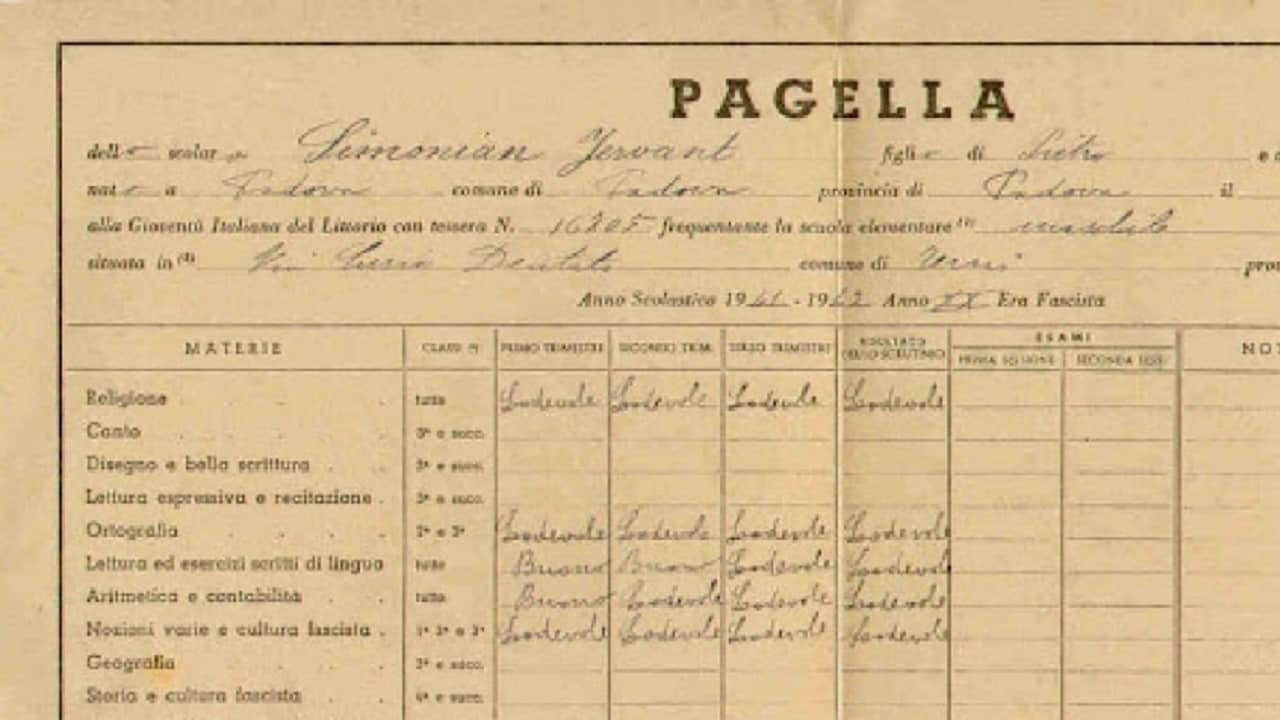 PAGELLA
dello scolaro Simonian Jervant figlio di Pietro e
nato a Padova comune di Padova provincia di Padova il
alla Gioventù Italiana del Littorio con tessera N. 16205 frequentante la scuola elementare (1) maschile
situata in (2) Via comune di
Anno Scolastico 1941 - 1942 Anno XX Era Fascista
MATERIE CLASSI PRIMO TRIMESTRE SECONDO TRIM. TERZO TRIMESTRE RISULTATO DELLO SCRUTINIO ESAMI PRIMA SESSIONE SECONDA SESS. NOT
Religione tutte Lodevole Lodevole Lodevole Lodevole
Canto 3ª e succ.
Disegno e bella scrittura 2ª e succ.
Lettura espressiva e recitazione 3ª e succ.
Ortografia 2ª e 3ª Lodevole Lodevole Lodevole Lodevole
Lettura ed esercizi scritti di lingua tutte Buono Buono Lodevole Lodevole
Aritmetica e contabilità tutte Buono Lodevole Lodevole Lodevole
Nozioni varie e cultura fascista 1ª 2ª e 3ª Lodevole Lodevole Lodevole Lodevole
Geografia 3ª e succ.
Storia e cultura fascista 4ª e succ.